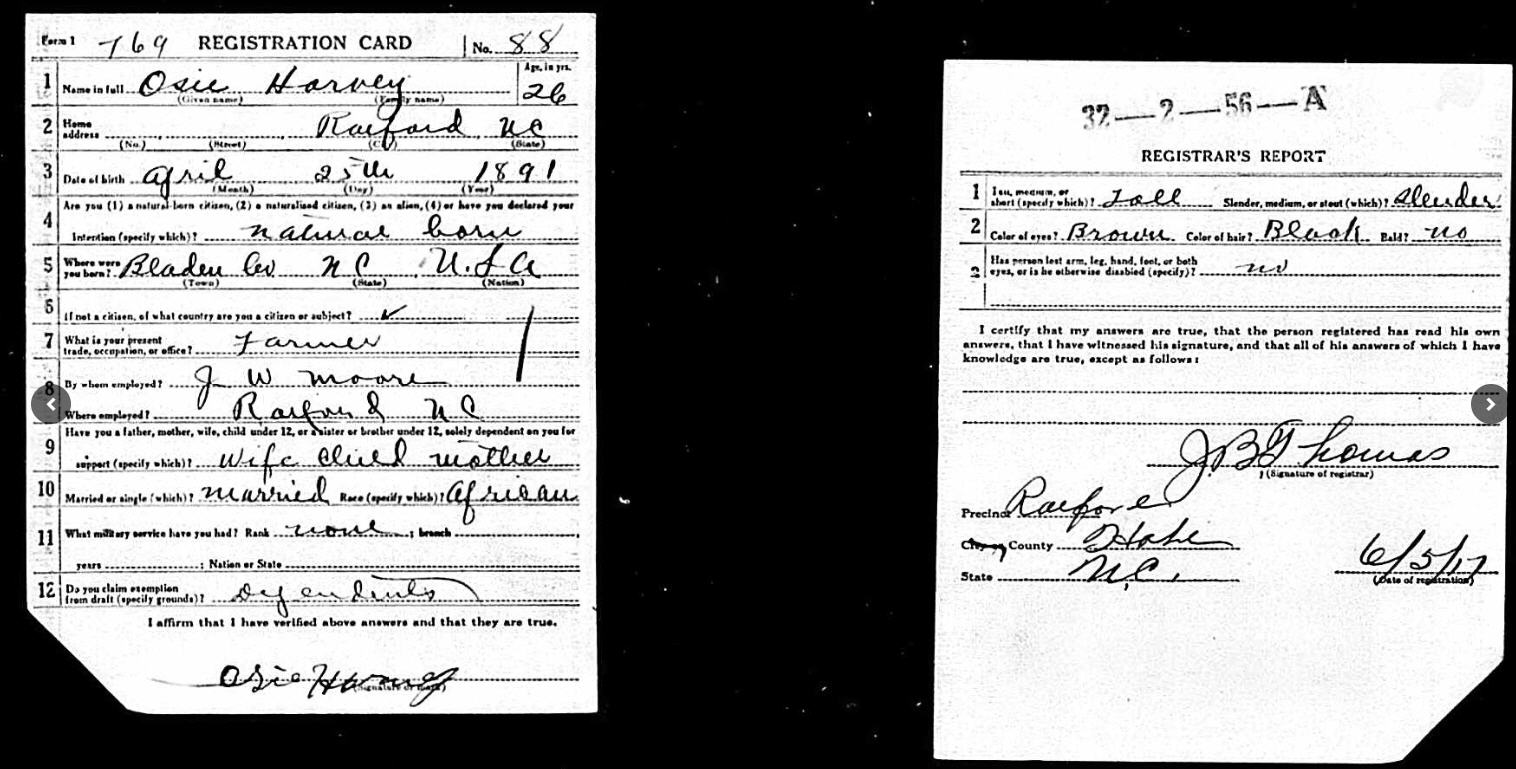 Form 1 769 REGISTRATION CARD No. 88
Age, in yrs.
1 Name in full Osie Harvey 26
(Given name) (Family name)
2 Home address Raeford NC
(No.) (Street) (City) (State)
3 Date of birth April 25th 1891
(Month) (Day) (Year)
Are you (1) a natural-born citizen, (2) a naturalized citizen, (3) an alien, (4) or have you declared your
4 intention (specify which)? natural born
5 Where were you born? Bladen Co NC U.S.A
(Town) (State) (Nation)
6 If not a citizen, of what country are you a citizen or subject? ✓
7 What is your present trade, occupation, or office? Farmer
8 By whom employed? J W Moore
Where employed? Raeford NC
Have you a father, mother, wife, child under 12, or a sister or brother under 12, solely dependent on you for
9 support (specify which)? Wife child mother
10 Married or single (which)? Married Race (specify which)? African
11 What military service have you had? Rank none ; branch
years ; Nation or State
12 Do you claim exemption from draft (specify grounds)? Dependents
I affirm that I have verified above answers and that they are true.
Osie Harvey
(Signature or mark)
32—2—56—A
REGISTRAR'S REPORT
1 Tall, medium, or short (specify which)? Tall Slender, medium, or stout (which)? Slender
2 Color of eyes? Brown Color of hair? Black Bald? no
3 Has person lost arm, leg, hand, foot, or both eyes, or is he otherwise disabled (specify)? no
I certify that my answers are true, that the person registered has read his own
answers, that I have witnessed his signature, and that all of his answers of which I have
knowledge are true, except as follows:
J B Thomas
(Signature of registrar)
Precinct Raeford
City or County Hoke
State N.C. 6/5/17
(Date of registration)